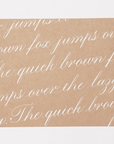 jumps o
own fox jumps on
he quick brown f
mps over the laz
The quick bro